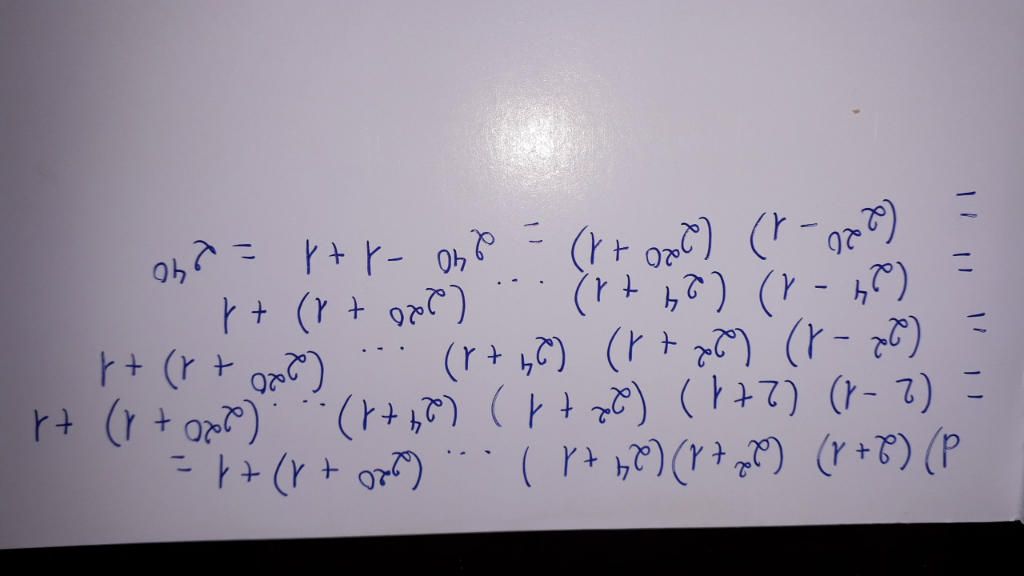 d) (2+1) (2²+1)(2⁴+1) ... (2²⁰+1)+1 =
= (2-1) (2+1) (2²+1) (2⁴+1) ... (2²⁰+1) +1
= (2²-1) (2²+1) (2⁴+1) ... (2²⁰+1) +1
= (2⁴-1) (2⁴+1) ... (2²⁰+1) +1
= (2²⁰-1) (2²⁰+1) = 2⁴⁰ -1+1 = 2⁴⁰
=